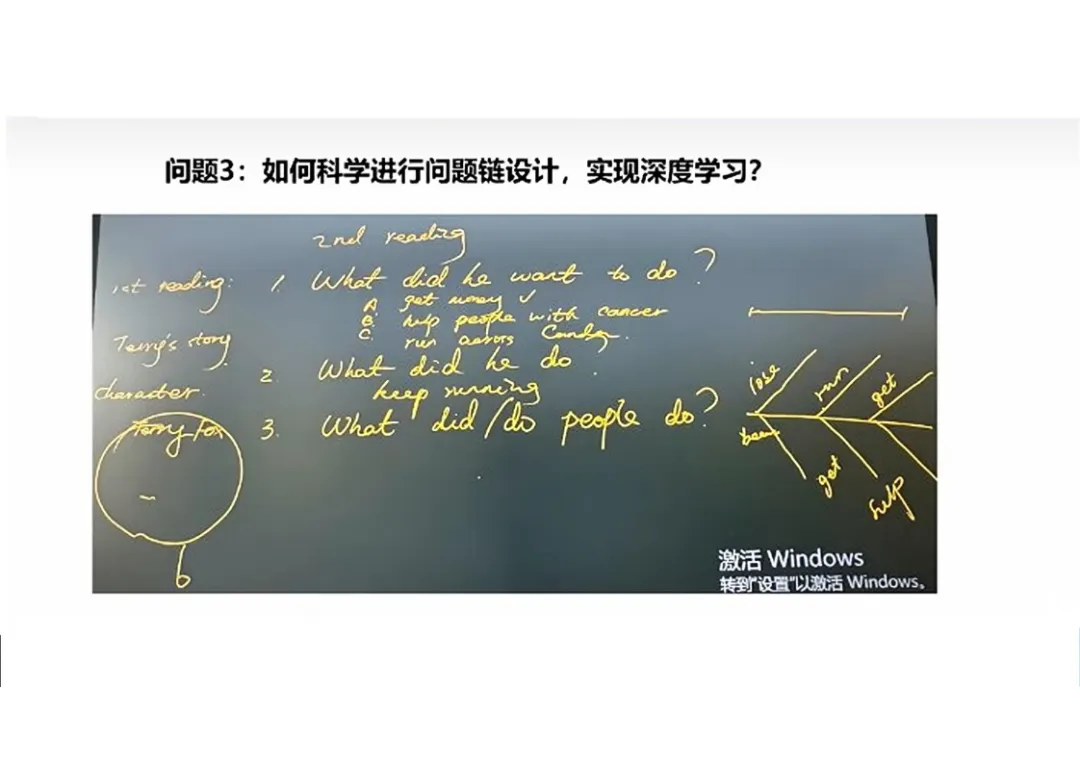 问题3：如何科学进行问题链设计，实现深度学习？
2nd reading
1st reading:
Terry's story
character.
Terry Fox
6
1. What did he want to do ?
A get money ✓
B. help people with cancer
C. run across
2. What did he do .
keep running
3. What did/do people do?
lose
run
get
get
help
激活 Windows
转到“设置”以激活 Windows。